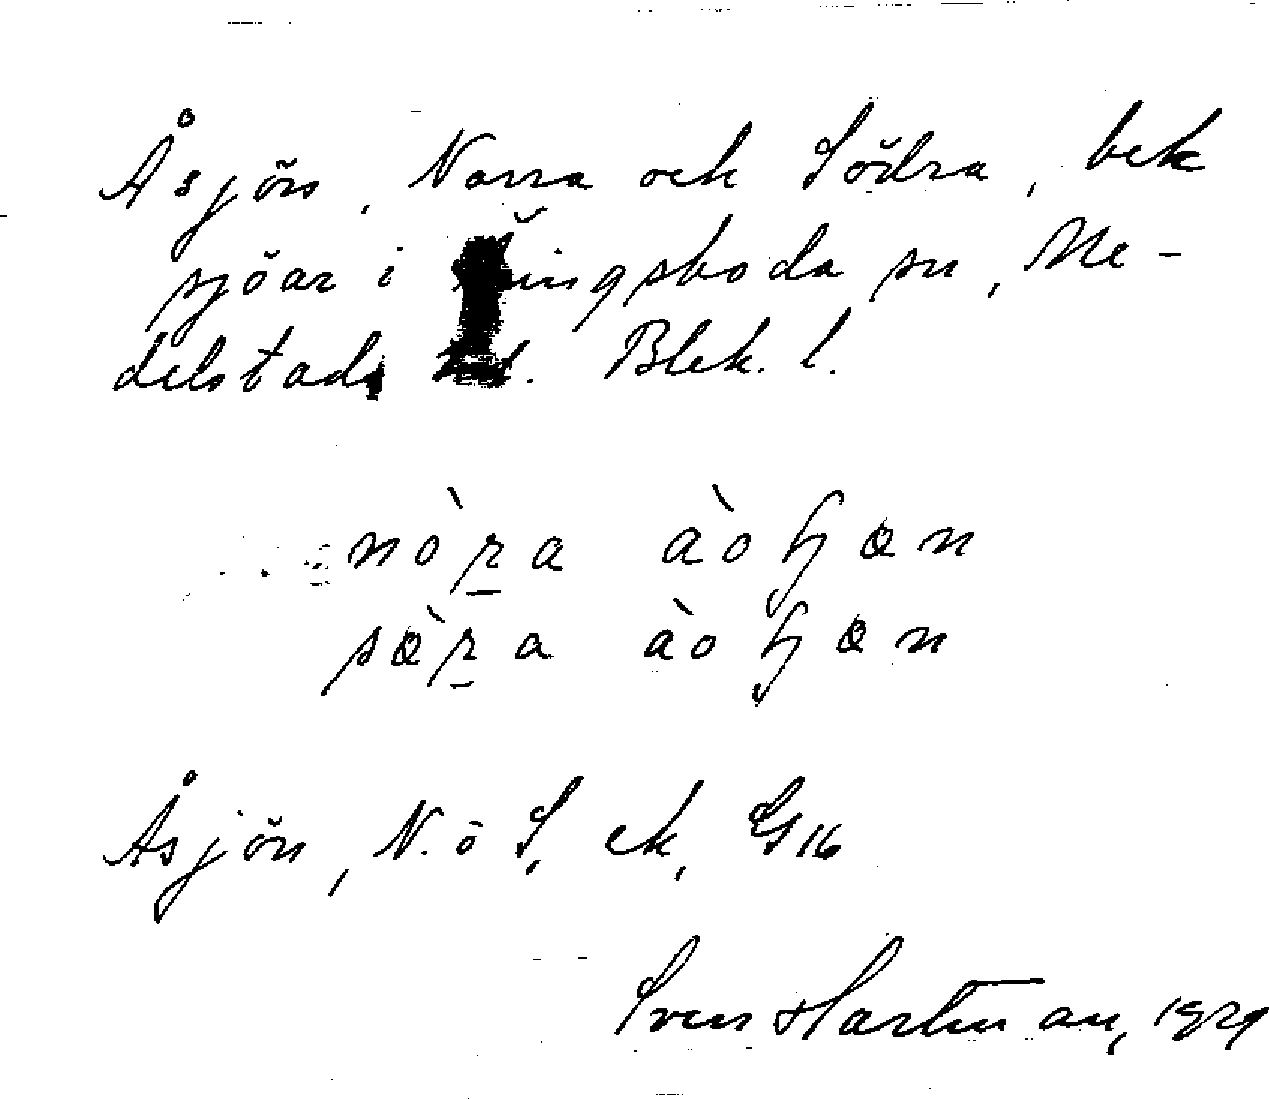 Åsjön, Norra och Södra, bek
sjöar i sn, Me-
delstads Blek. l.
nòra àoɧøn
sø̀ra àoɧøn
Åsjön, N. o S, ek, G16
Sven Hartman, 1929